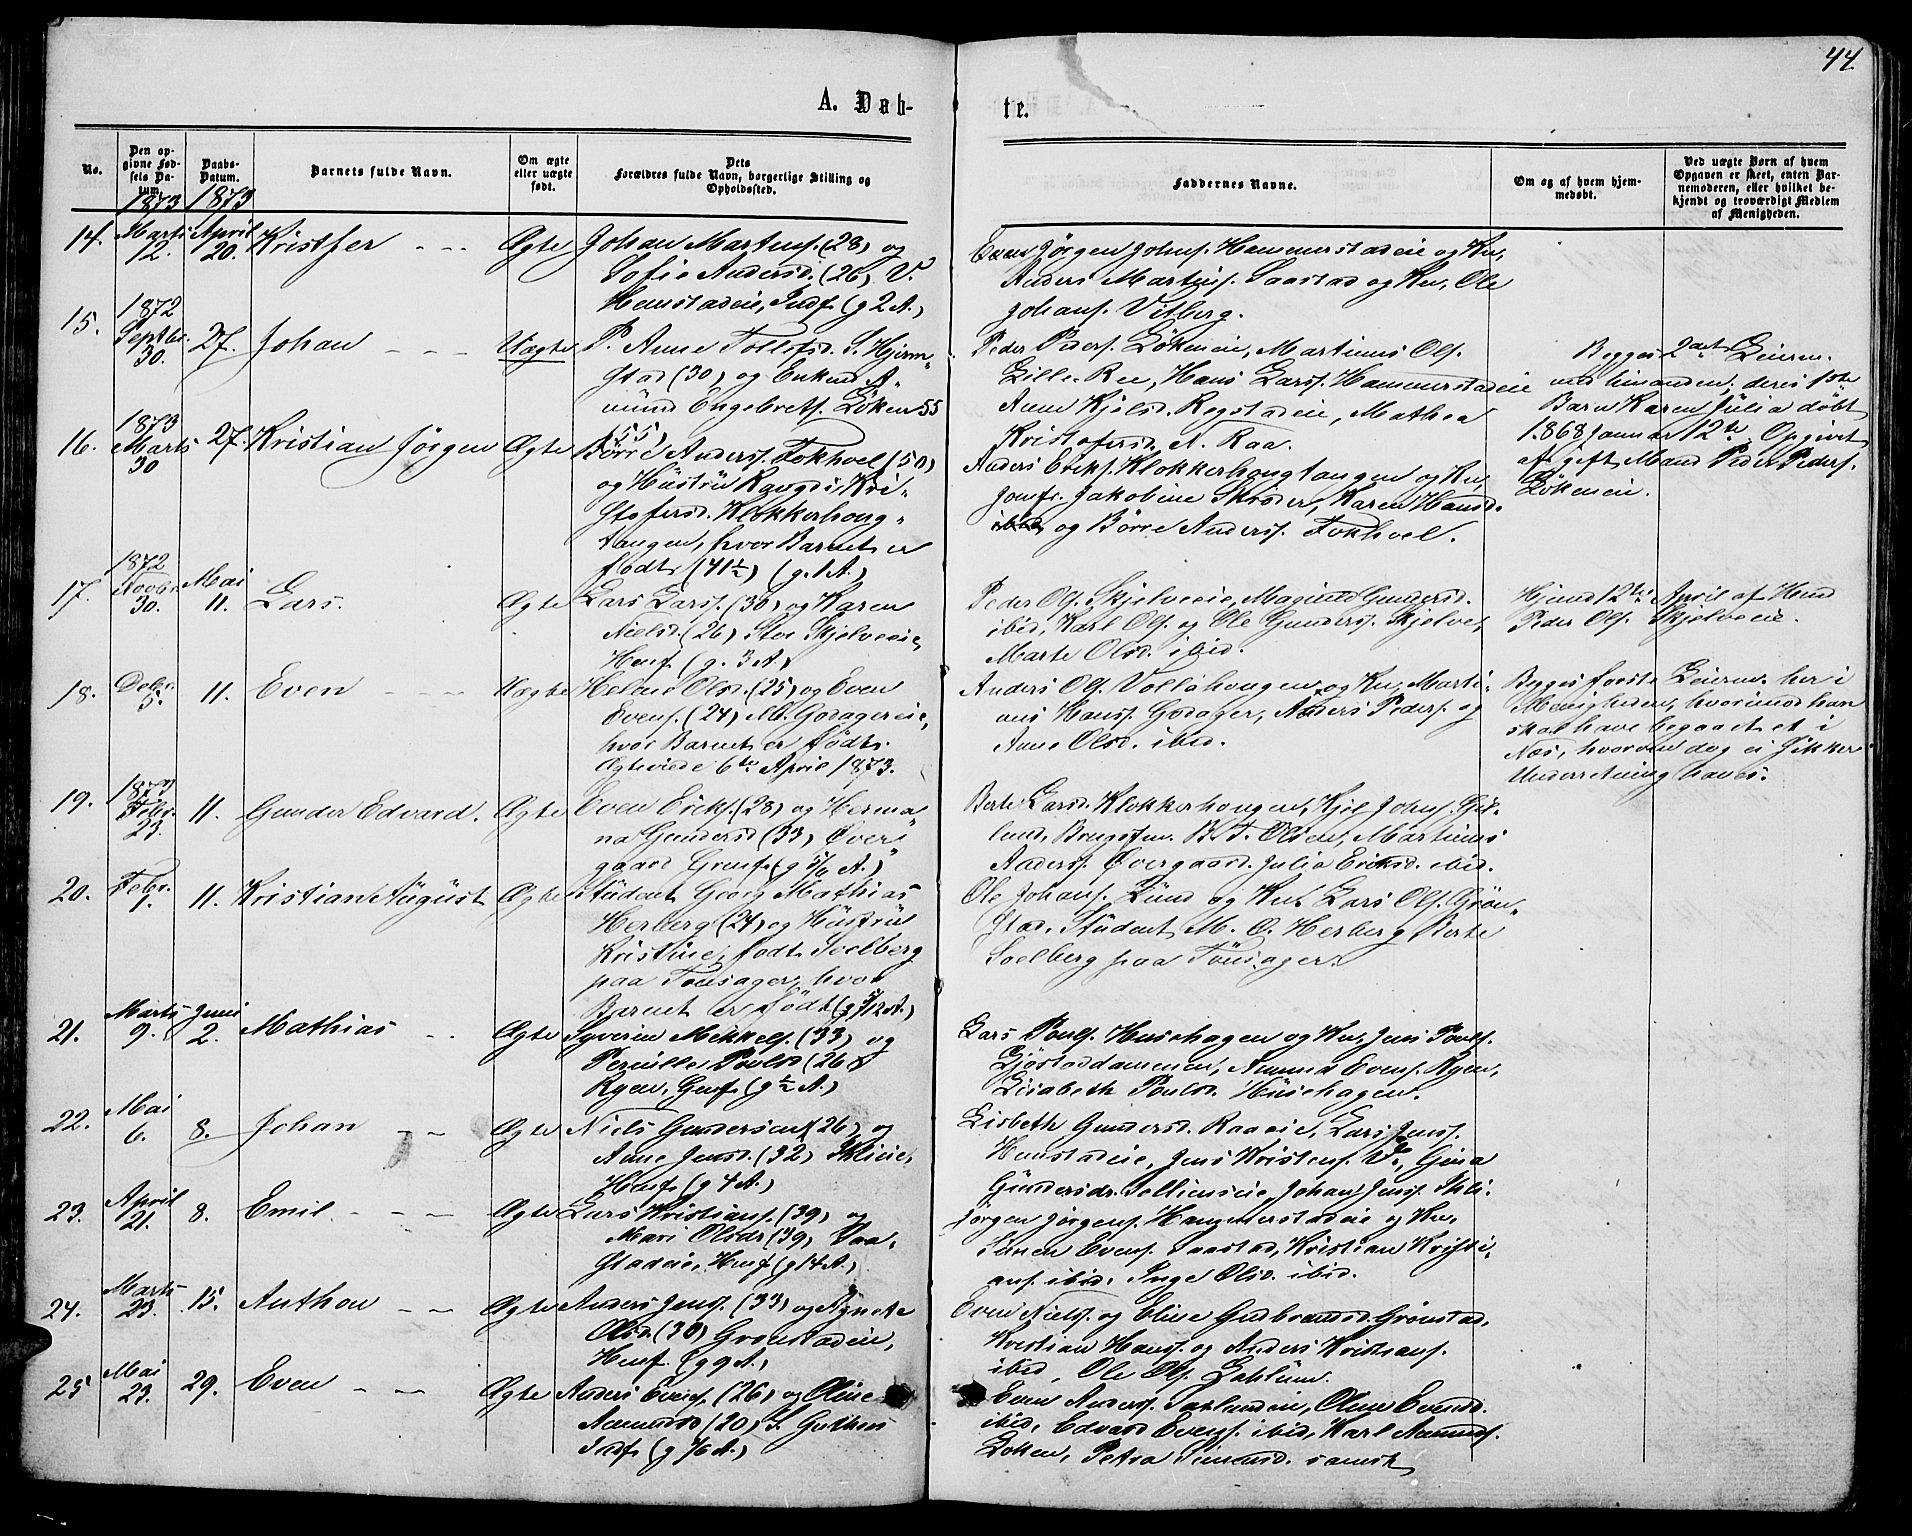 44
A. Døb-
te.
No.
Den op-
givne Fød-
sels Da-
tum.
Daabs-
Datum.
Barnets fulde Navn.
Om ægte
eller uægte
født.
Dets
Forældres fulde Navn, borgerlige Stilling og
Opholdssted.
Faddernes Navne.
Om og af hvem hjem-
medøbt.
Ved uægte Børn af hvem
Opgaven er skeet, enten Bar-
nemoderen, eller hvilket be-
kjendt og troværdigt Medlem
af Menigheden.
1873 1873
14. Marts 12. April 20. Kristfer Ægte Johan Martins. (28) og
Sofie Andersd. (26) V.
Henstadeie, Inds. (g 2 A.)
Jørgen Johns. Hammerstadeie og Ku,
Anders Martins. Saastad og Ku, Ole
Johans. Vilberg.
15. 1872 Septbr. 30. 27. Johan Uægte P. Anne Tollofsd. S. Hjerm-
stad (30) og Enkemd A-
mund Engebrets. Løken 55
(55)
Peder Peders. Løkeneie, Martinus Ols.
Lille-Ree, Hans Larss. Hammerstadeie
Anne Kjelsd. Rogstadeie, Mathea
Kristofersd. N. Raa.
Begges 2det Leierm.
med hinanden; deres 1ste
Barn Karen Julia døbt
1868 Januar 12te. Opgivet
af gift Mand Peder Peders.
Løkeneie.
16. 1873 Marts 30 27. Kristian Jørgen Ægte Børre Anderss. Fokhol (50)
og Hustru Randi Kri-
stofersd. Klokkerhoug-
tangen, hvor Barnet er
født. (41½) (g. 1 A.)
Anders Eriks. Klokkerhougtangen og Ku,
Jomfr. Jakobine Skrøder, Karen Hansd.
ibid og Børre Anderss. Fokhol.
17. 1872 Novbr. 30. Mai 11. Lars. Ægte Lars Larss. (30) og Karen
Nielsd. (26) Stor Skjelveeie,
Husf. (g. 3 A.)
Peder Ols. Skjelveeie, Gundersd.
ibid, Karl Ols. og Ole Gunderss. Skjelve,
Marte Olsd. ibid.
Hjemd. 12te April af Hmd
Peder Ols. Skjelveeie.
18. Decbr. 5. 11. Even Uægte Helene Olsd. (25) og Even
Evens. (24) M. Godagereie,
hvor Barnet er født.
Ægteviede 6te April 1873.
Anders Ols. Vollahougen og Ku, Marti-
nus Hanss. Godager, Anders Peders. og
Anne Olsd. ibid.
Begges første Leierm. her i
Menigheden, hvorimod han
skal have begaaet et i
Næs, hvorom dog ei sikker
Underretning haves.
19. 1873 Febr. 23. 11. Gunder Edvard. Ægte Even Eriks. (28) og Herma-
na Gundersd. (33) Øver-
gaard Grusf. (g 5/6 A.)
Berte Larsd. Klokkerhougen, Kjel Johns. Gis-
lund, B. T. Olsen, Martinus
Anderss. Øvergaard. Julia Eriksd. ibid.
20. Febr. 1. 11. Kristian August Ægte Student Georg Mathias
Herberg (24) og Hustru
Kristine, født Soelberg
paa Tonsager, hvor
Barnet er født (g 5/12 A.)
Ole Johans. Lund og Ku, Lars Ols. Grøn-
stad, Student M. O. Herberg, Berte
Soelberg paa Tonsager.
21. Marts 9. Juni 2. Mathias Ægte Syverin Mikkels. (33) og
Pernille Poulsd. (26)
Ryen, Grusf. (g ½ A.)
Lars Pouls. Husehagen og Ku, Jens Pouls.
Gjøstaddammen, Evens. Ryen,
Lisabeth Poulsd. Husehagen.
22. Mai 6. 8. Johan Ægte Niels Gundersen (26) og
Anne Jensd. (32) Thlieie,
Husf. (g 4 A.)
Lisbeth Gundersd. Raaeie, Lars Jenss.
Henstadeie, Jens Kristens. V., Gina
Gundersdr. Johan Jenss.
23. April 21. 8. Emil Ægte Lars Kristians. (39) og
Mari Olsdr (39) Saa-
stadeie, Husf. (g 14 A.)
Jørgen Jørgens. Hammerstadeie og Ku,
Simen Evens. Saastad, Kristian Kristi-
ans. ibid, Inge Olsd. ibid.
24. Marts 23. 15. Anthon Ægte Anders Jenss. (33) og Agnete
Olsd. (30) Grønstadeie,
Husf. (g 9 A.)
Even Niels. og Eline Gudbrandsd. Grønstad,
Kristian Hanss. og Anders Kristians.
ibid, Ole Ols. Dahlum.
25 Mai 23. 29. Even Ægte Anders Evens. (26) og Oline
Aamundsd (20) S.
Inds. (g 1/6 A.)
Even Anderss. Olene Evensd.
ibid, Edvard Evens. ibid, Karl Aamunds.
Løken, Petra Simensd. samst.